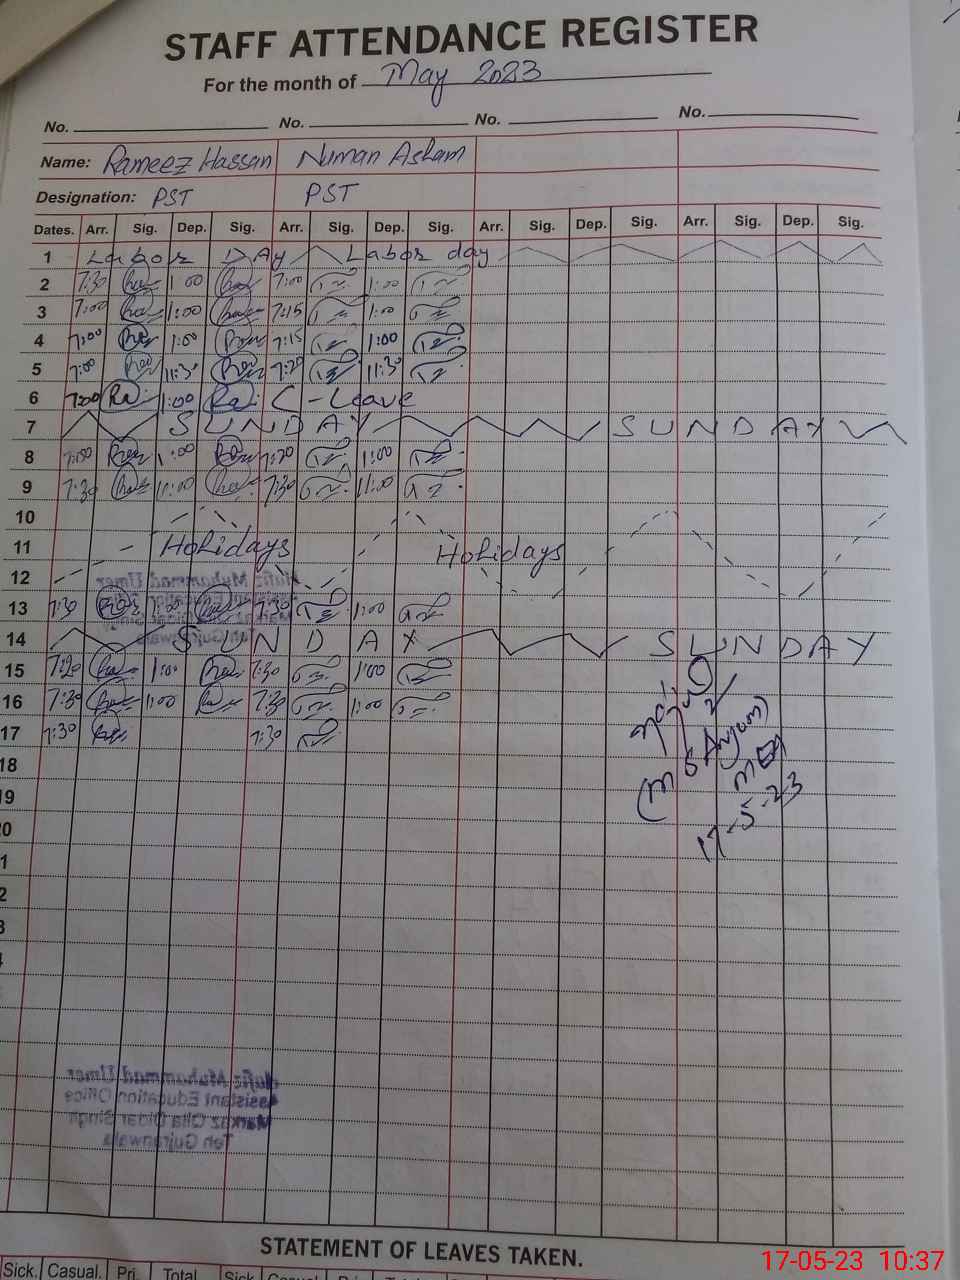 STAFF ATTENDANCE REGISTER
For the month of May 2023
No. No. No. No.
Name: Rameez Hassan Numan Asham
Designation: PST PST
Dates. Arr. Sig. Dep. Sig. Arr. Sig. Dep. Sig. Arr. Sig. Dep. Sig. Arr. Sig. Dep. Sig.
1 Labor DAy Labor day
2 7:30 1:00 7:00 1:00
3 7:00 1:00 7:15 1:00
4 7:00 1:00 7:15 1:00
5 7:00 11:30 7:20 11:30
6 7:00 Ra 1:00 Ra C-Leave
7 SUNDAY SUNDAY
8 7:00 1:00 7:20 1:00
9 7:30 11:00 7:30 11:00
10
11 Holidays Holidays
12
13 7:30 1:00 7:30 1:00
14 SUNDAY SUNDAY
15 7:20 1:00 7:30 1:00
16 7:30 1:00 7:30 1:00
17 7:30 7:30
(M S Anjum)
MEA
17-5-23
18
19
20
1
2
3
4
Hafiz Muhammad Umer
Assistant Education Office
Markaz Qila Didar Singh
Teh Gujranwala
Hafiz Muhammad Umer
Assistant Education Office
Markaz Qila Didar Singh
Teh Gujranwala
STATEMENT OF LEAVES TAKEN.
Sick. Casual. Pri. Total Sick
17-05-23 10:37